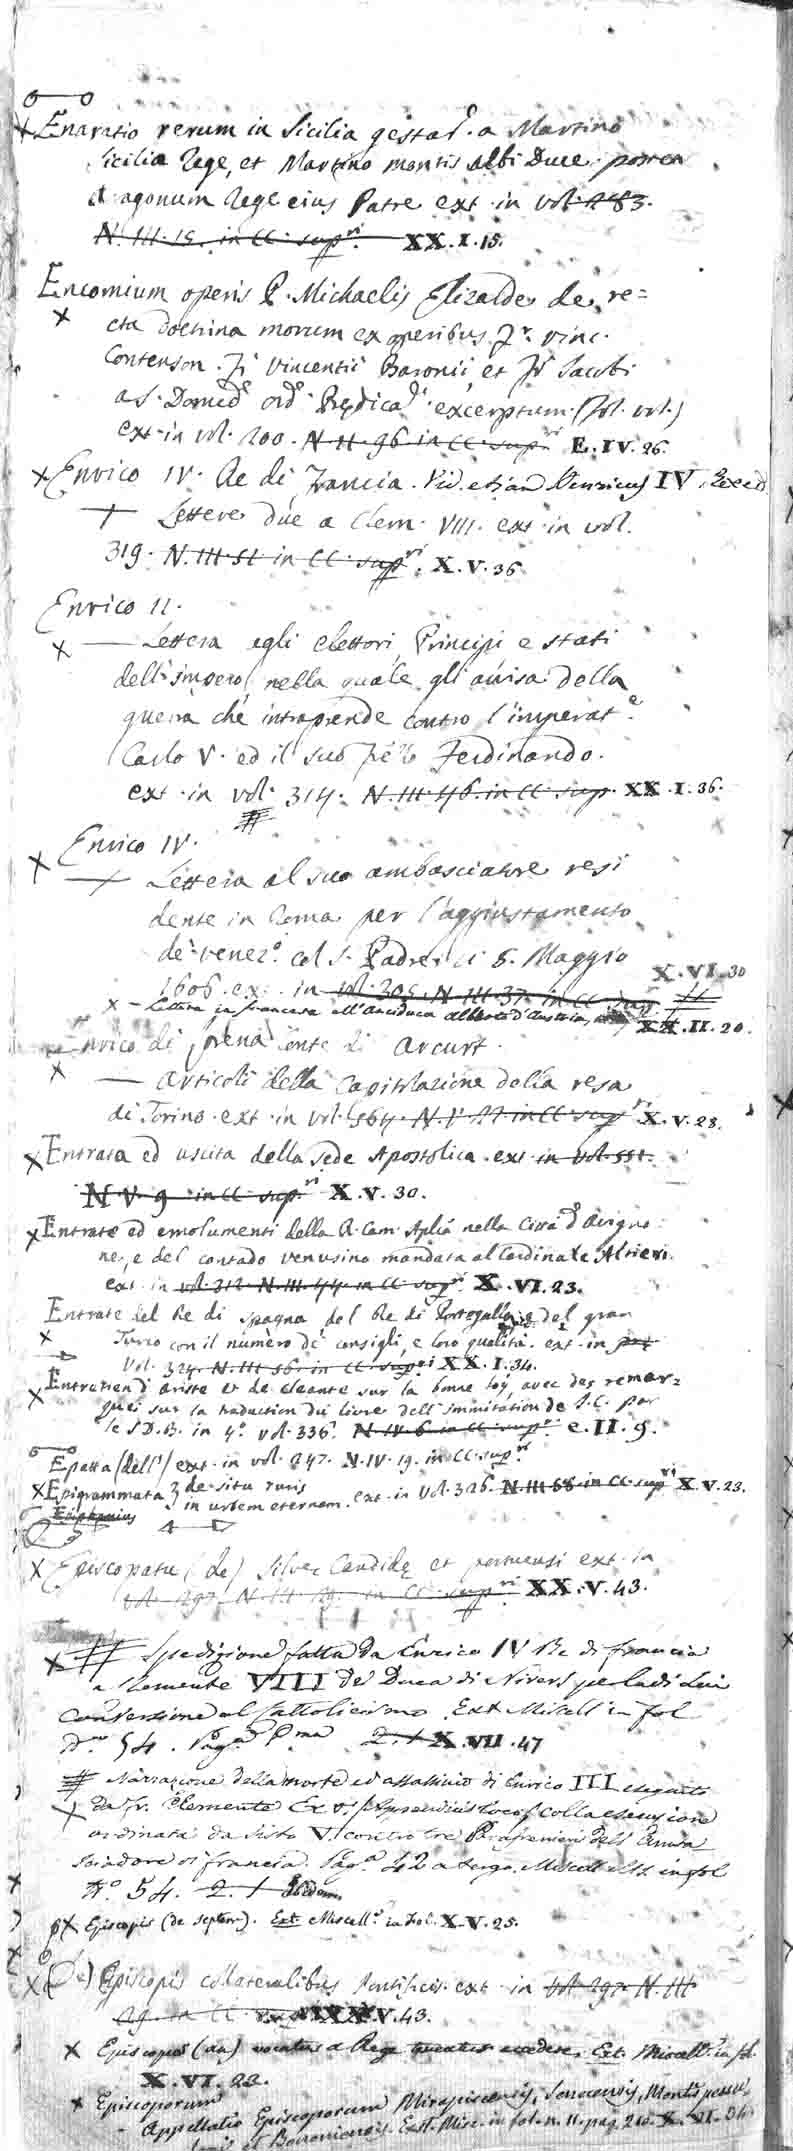 Enaratio rerum in Sicilia gestar. a Martino
Sicilia Rege, et Martino montis Albi Duce postea
Aragonum Rege eius Patre ext in vol. 283.
N. III. 15. in CC. supri. XX.I.15.
Encomium operis P. Michaelis Elizalde de re=
cta doctrina morum ex operibus Fr. Vinc.
Contenson. Fr. Vincentii Baronii, et Fr. Jacobi
a S. Domco ord. Prędicat. excerptum. (Fol. vol.)
ext in vol. 200. N. II. 96 in CC. supri E.IV.26.
Enrico IV. Re di Francia. Vid. etiam Henricus IV.
Lettere due a Clem. VIII. ext in vol.
319. N. III. 51 in CC. supri. X.V.36
Enrico II.
— Lettera agli Elettori, Principi e stati
dell'impero, nella quale gli avisa della
guerra che intraprende contro l'imperate.
Carlo V. ed il suo Ferdinando.
ext in vol. 314. N. III. 46. in CC. sup. XX.I.36.
Enrico IV.
— Lettera al suo ambasciatore resi
dente in Roma per l'aggiustamento
de' venezi. col S. Padre 5. Maggio
X.VI.30
1606. ex. in vol. 305. N. III. 37. in CC. sup.
— Lettera in francese all'Arciduca Alberto d'Austria, XX.II.20.
Enrico di Lorena Conte di Arcurt.
— Articoli della Capitolazione della resa
di Torino. ext in vol. 564. N. V. 22 in CC. supri X.V.23.
Entrata ed uscita della Sede Apostolica. ext in vol. 551.
N. V. 9 in CC. supri X.V.30.
Entrate ed emolumenti della R. Cam. Aplia nella Città d'Avigno
ne, e del contado venusino mandata al Cardinale Altieri
ext in vol. 312. N. III. 44. in CC. supri X.VI.23.
Entrate del Re di Spagna del Re di Portogallo, e del gran
Turco con il numero de' consigli, e loro qualità. ext in
Vol. 324. N. III. 56. in CC. supri XX.I.34.
Entretien d'ariste et de cleante sur la bonne foy, avec des remar=
ques sur la traduction du livre dell'immitation de J.C. par
le S.D.B. in 4o. vol. 336. N. IV. 6 in CC. supri. e.II.9.
Epatta (dell') ext in vol. 247. N. IV. 19. in CC. supri
Epigrammata de situ ruris
in urbem eternam. ext in Vol. 326. N. III. 58. in CC. supri X.V.23.
Epiphanius
Episcopatu (de) Silvę Candidę et portuensi ext in
vol. 297. N. III. 29. in CC. supri XX.V.43.
Spedizione fatta da Enrico IV Re di francia
a Clemente VIII de Duca di Nivers per la di lui
Conversione al Cattolicismo. Ext Miscell in fol
No. 54. Paga. Pma 2. 1 X.VII.47
Narrazione della morte ed assassinio di Enrico III eseguito
da Fr. Clemente colla esecuzione
ordinata da Sisto V. contro tre Parafrenieri dell'Amba
sciadore di francia. Paga. 42 a tergo. Miscell. in fol
No. 54. 2. 1 Ibidem
Episcopis (de septem). Ext. Miscell. in Fol. X.V.25.
(De) Episcopis collateralibus Pontificis. ext in vol. 297. N. III.
29. in CC. XX.V.43.
Episcopus (an) vocatus a Rege accedere. Ext. Miscell. in fol.
X.VI.23.
Episcoporum
- Appellatio Episcoporum Mirapiscensis, Montis pessu-
Ext. Misc. in fol. n. 11. pag. 210. X.VI.34